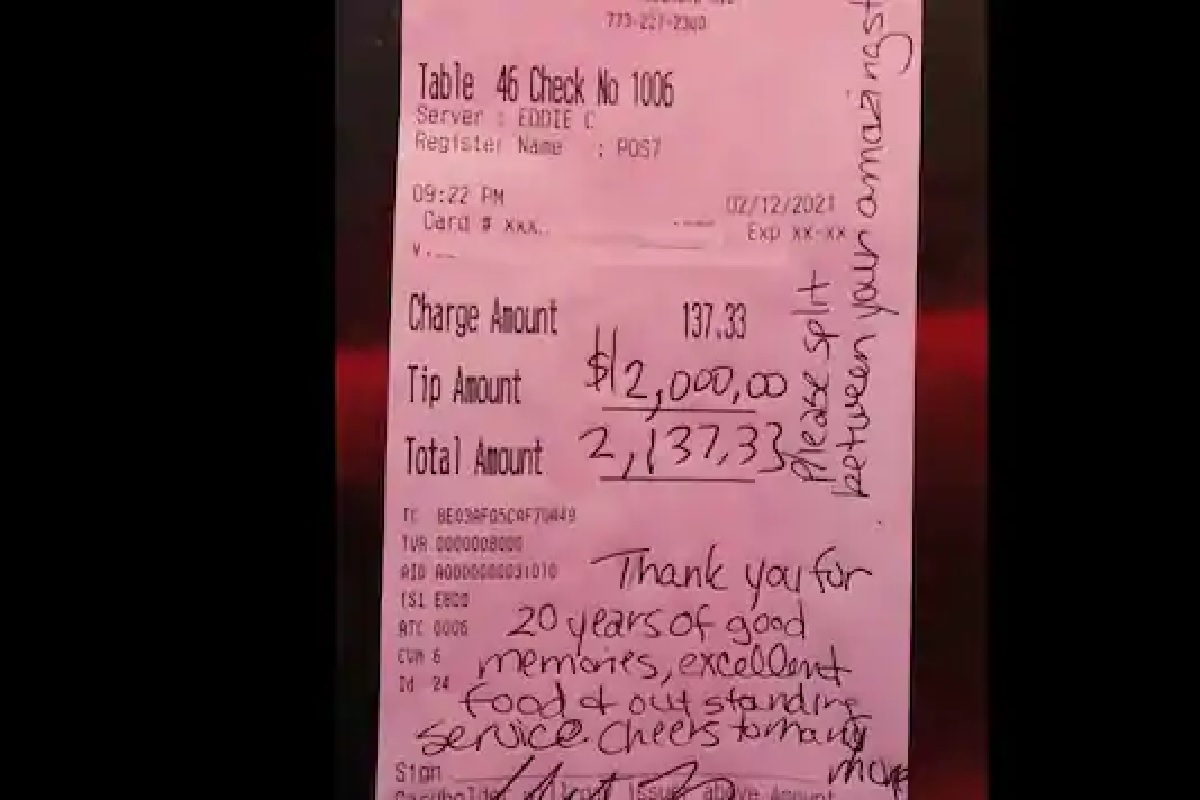 773-227-2300
Table 46 Check No 1006
Server : EDDIE C
Register Name : POS7
09:22 PM 02/12/2021
Card # xxx.. Exp xx-xx
Charge Amount 137.33
Tip Amount $2,000,00
Total Amount 2,137.33
TVR 0000008000
AID A0000000031010
TSI E800
ATC 0006
CVM 6
Id 24
Thank you for
20 years of good
memories, excellent
food & outstanding
service. Cheers to many
more
Please split
between your amazing
Sign
Cardholder will issuer above Amount